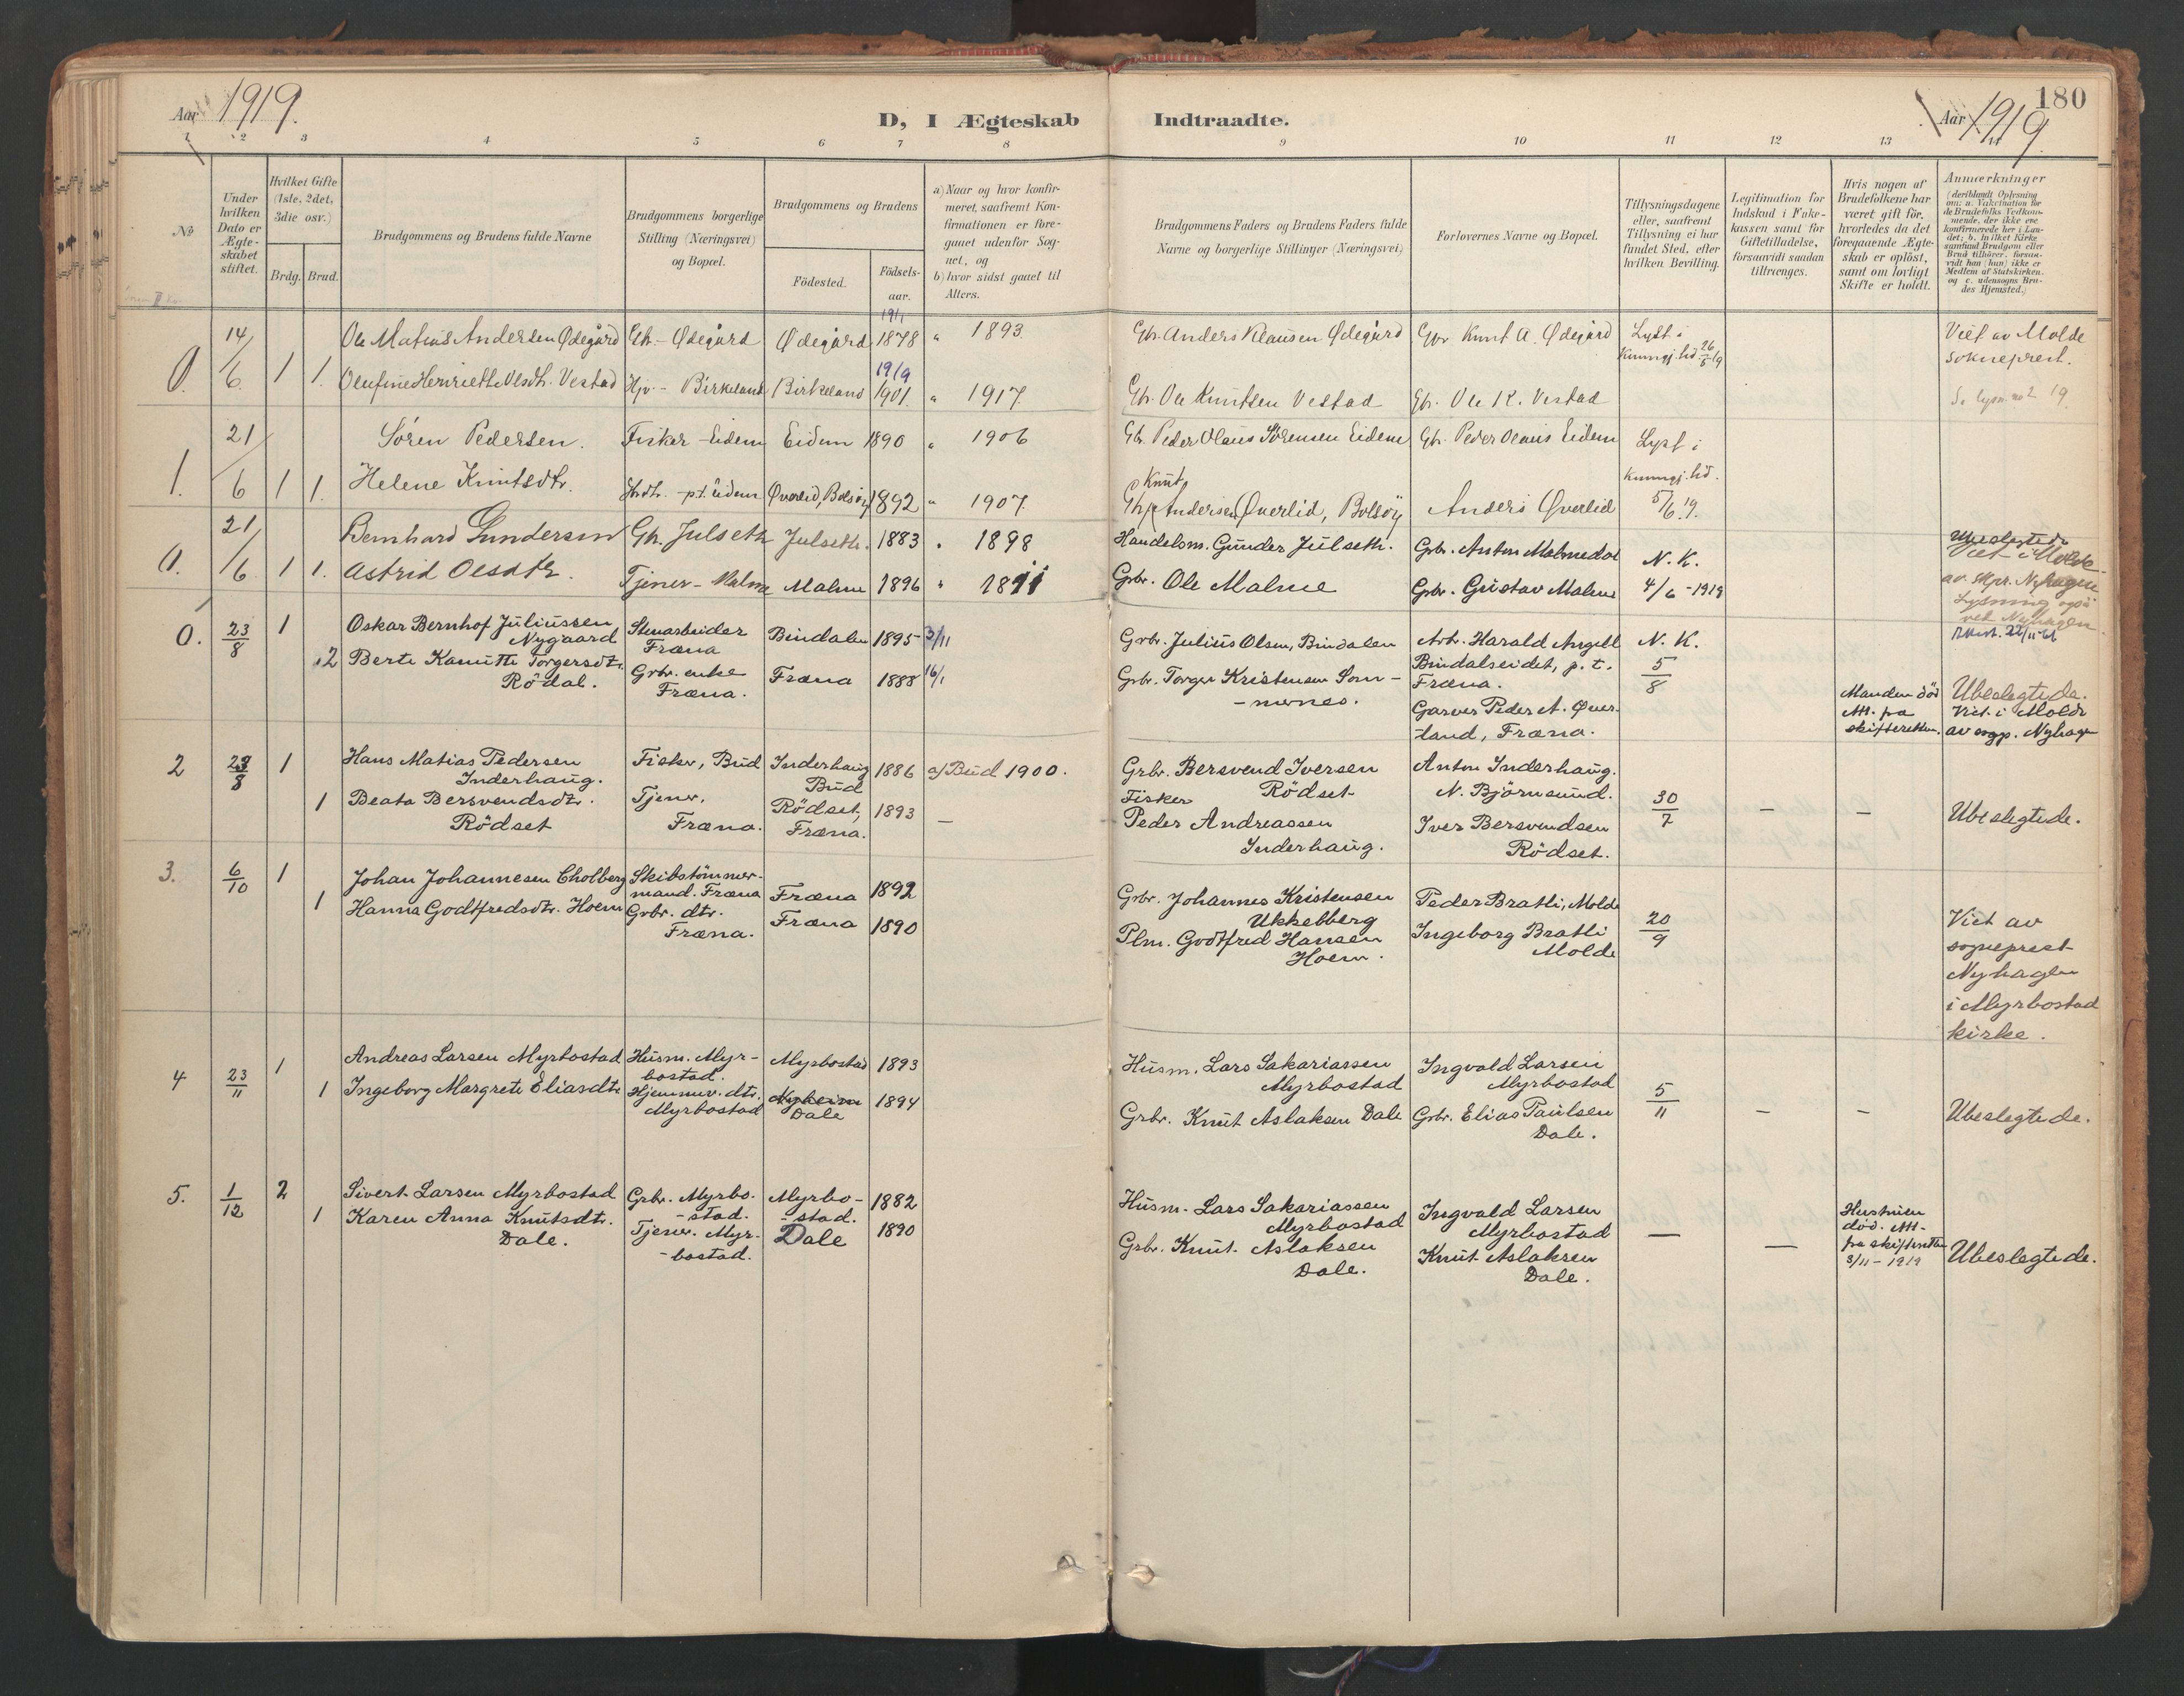 180
Aar 1919.
D, I Ægteskab Indtraadte.
Aar 1919
1 2 3 4 5 6 7 8 9 10 11 12 13 14
No
Under hvilken Dato er Ægteskabet stiftet.
Hvilket Gifte (1ste, 2det, 3die osv.)
Brdg. Brud.
Brudgommens og Brudens fulde Navne
Brudgommens borgerlige Stilling (Næringsvei) og Bopæl.
Brudgommens og Brudens
Födested. Födselsaar.
a) Naar og hvor konfirmeret, saafremt Konfirmationen er foregaaet udenfor Sognet, og
b) hvor sidst gaaet til Alters.
Brudgommens Faders og Brudens Faders fulde Navne og borgerlige Stillinger (Næringsvei)
Forlovernes Navne og Bopæl.
Tillysningsdagene eller, saafremt Tillysning ei har fundet Sted, efter hvilken Bevilling.
Legitimation for Indskud i Enkekassen samt for Giftetilladelse, forsaavidt saadan tiltrænges.
Hvis nogen af Brudefolkene har været gift för, hvorledes da det foregaaende Ægteskab er oplöst, samt om lovligt Skifte er holdt.
Anmærkninger
(deriblandt Oplysning om: a. Vakcination for de Brudefolks Vedkommende, der ikke ere konfirmerede her i Landet; b. hvilket Kirkesamfund Brudgom eller Brud tilhörer, forsaavidt han (hun) ikke er Medlem af Statskirken, og c. udensogns Brudes Hjemsted.)
0. 14/6 1 Ole Matias Andersen Ødegård Gb. - Ødegård Ødegård 19/1 1878 " 1893 Gb. Anders Klausen Ødegård Gbr Knut A. Ødegård Lyst i kunngj.tid 26/5 19 Viet av Molde sokneprest.
1. Olufine Henriette Olsdtr. Vestad Hjv - Birkeland Birkeland 19/9 1901. " 1917. Gb. Ole Knutsen Vestad Gb. Ole K. Vestad
1. 21/6 1 Sören Pedersen. Fisker - Eidem Eidem 1890 " 1906 Gb. Peder Olaus Sörensen Eidem Gb. Peder Olaus Eidem Lyst i kunngj.tid. 5/6 19.
1. Helene Knutsdtr. pt. Eidem Øverlid, Bolsöy 1892 " 1907. Gb. Knut Andersen Øverlid, Bolsöy Anders Øverlid
0. 21/6 1 Bernhard Gundersen Gb. Julseth Julseth. 1883 " 1898 Handelsm. Gunder Julseth. Grbr. Anton Malmedal N. K. 4/6 - 1919
1. Astrid Olsdtr. Tjener - Malme Malme 1896 " 1911 Grbr. Ole Malme Grbr. Gustav Malme
Ubeslegtede Viet i Molde av skpr. Nyhagen Lysning også ved Nyhagen.
0. 23/8 1 Oskar Bernhof Juliussen Nygaard Stenarbeider Fræna Bindalen 1895 3/11 Grbr. Julius Olsen, Bindalen Arb. Harald Angell Bindalseidet, p. t. Fræna. N. K. 5/8
2 Berte Kanutte Torgersdtr. Rödal. Grbr. enke Fræna. Fræna 1888 16/1 Grbr. Torger Kristensen Sommernes. Garver Peder A. Øverland, Fræna. Manden död Att. fra skifteretten. Ubeslegtede. Viet i Molde av sogp. Nyhagen
2 23/8 1 Hans Matias Pedersen Inderhaug. Fisker, Bud Inderhaug Bud 1886 a/ Bud 1900. Grbr. Bersvend Iversen Rödset Anton Inderhaug. N. Björnsund. 30/7 — —
1 Beata Bersvendsdtr. Rödset Tjener, Fræna. Rödset, Fræna. 1893 — Fisker Peder Andreassen Inderhaug. Iver Bersvendsen Rödset. Ubeslegtede.
3. 6/10 1 Johan Johannesen Cholberg Skibstömmermand. Fræna Fræna 1892 Grbr. Johannes Kristensen Ukkelberg Peder Bratli, Molde 20/9
1 Hanna Godtfredsdtr. Hoem Grbr. dtr. Fræna. Fræna 1890 Plm. Godtfred Hansen Hoem. Ingeborg Bratli Molde
Viet av sogneprest Nyhagen i Myrbostad kirke.
4 23/11 1 Andreas Larsen Myrbostad Husm. Myrbostad. Myrbostad 1893 Husm. Lars Sakariassen Myrbostad Ingvald Larsen Myrbostad 5/11 — —
1 Ingeborg Margrete Eliasdtr. Hjemmev. dtr. Myrbostad Dale 1894 Grbr. Knut Aslaksen Dale Grbr. Elias Paulsen Dale. Ubeslegtede.
5. 1/12 2 Sivert Larsen Myrbostad Grbr. Myrbo-stad. Myrbo-stad. 1882 Husm. Lars Sakariassen Myrbostad Ingvald Larsen Myrbostad — —
1 Karen Anna Knutsdtr. Dale. Tjener. Myr-bostad. Dale 1890 Grbr. Knut Aslaksen Dale. Knut Aslaksen Dale. Hustruen död. Att. fra skifteretten 3/11 - 1919 Ubeslegtede.